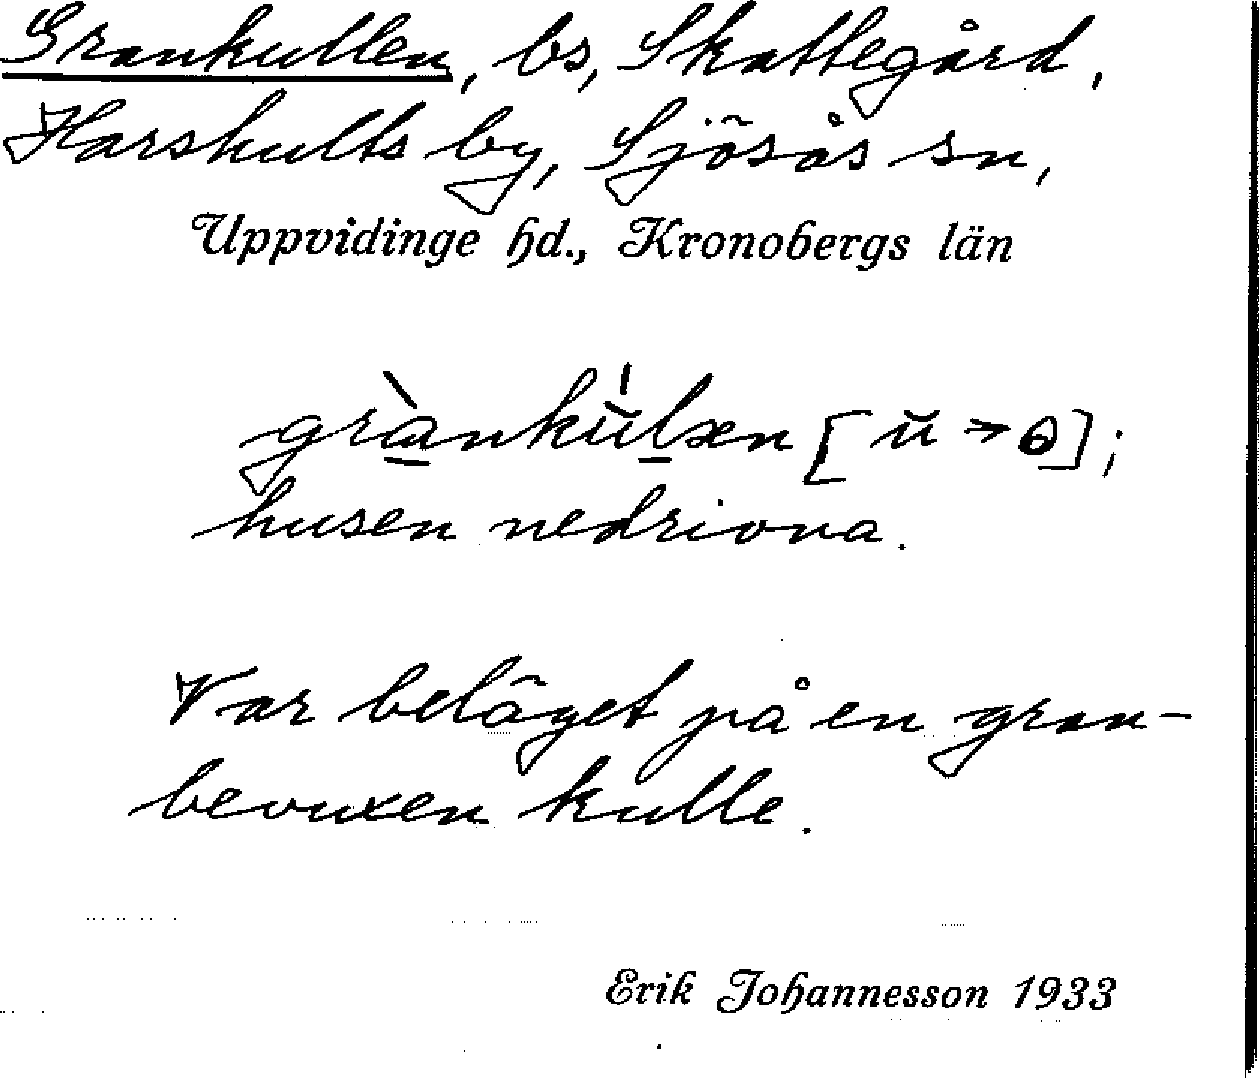 Grankullen, bs, Skattegård,
Harshults by, Sjösås sn,
Uppvidinge hd., Kronobergs län
grànkŭ́lxn [ŭ → ɵ];
husen nedrivna.
Var beläget på en gran-
bevuxen kulle.
Erik Johannesson 1933